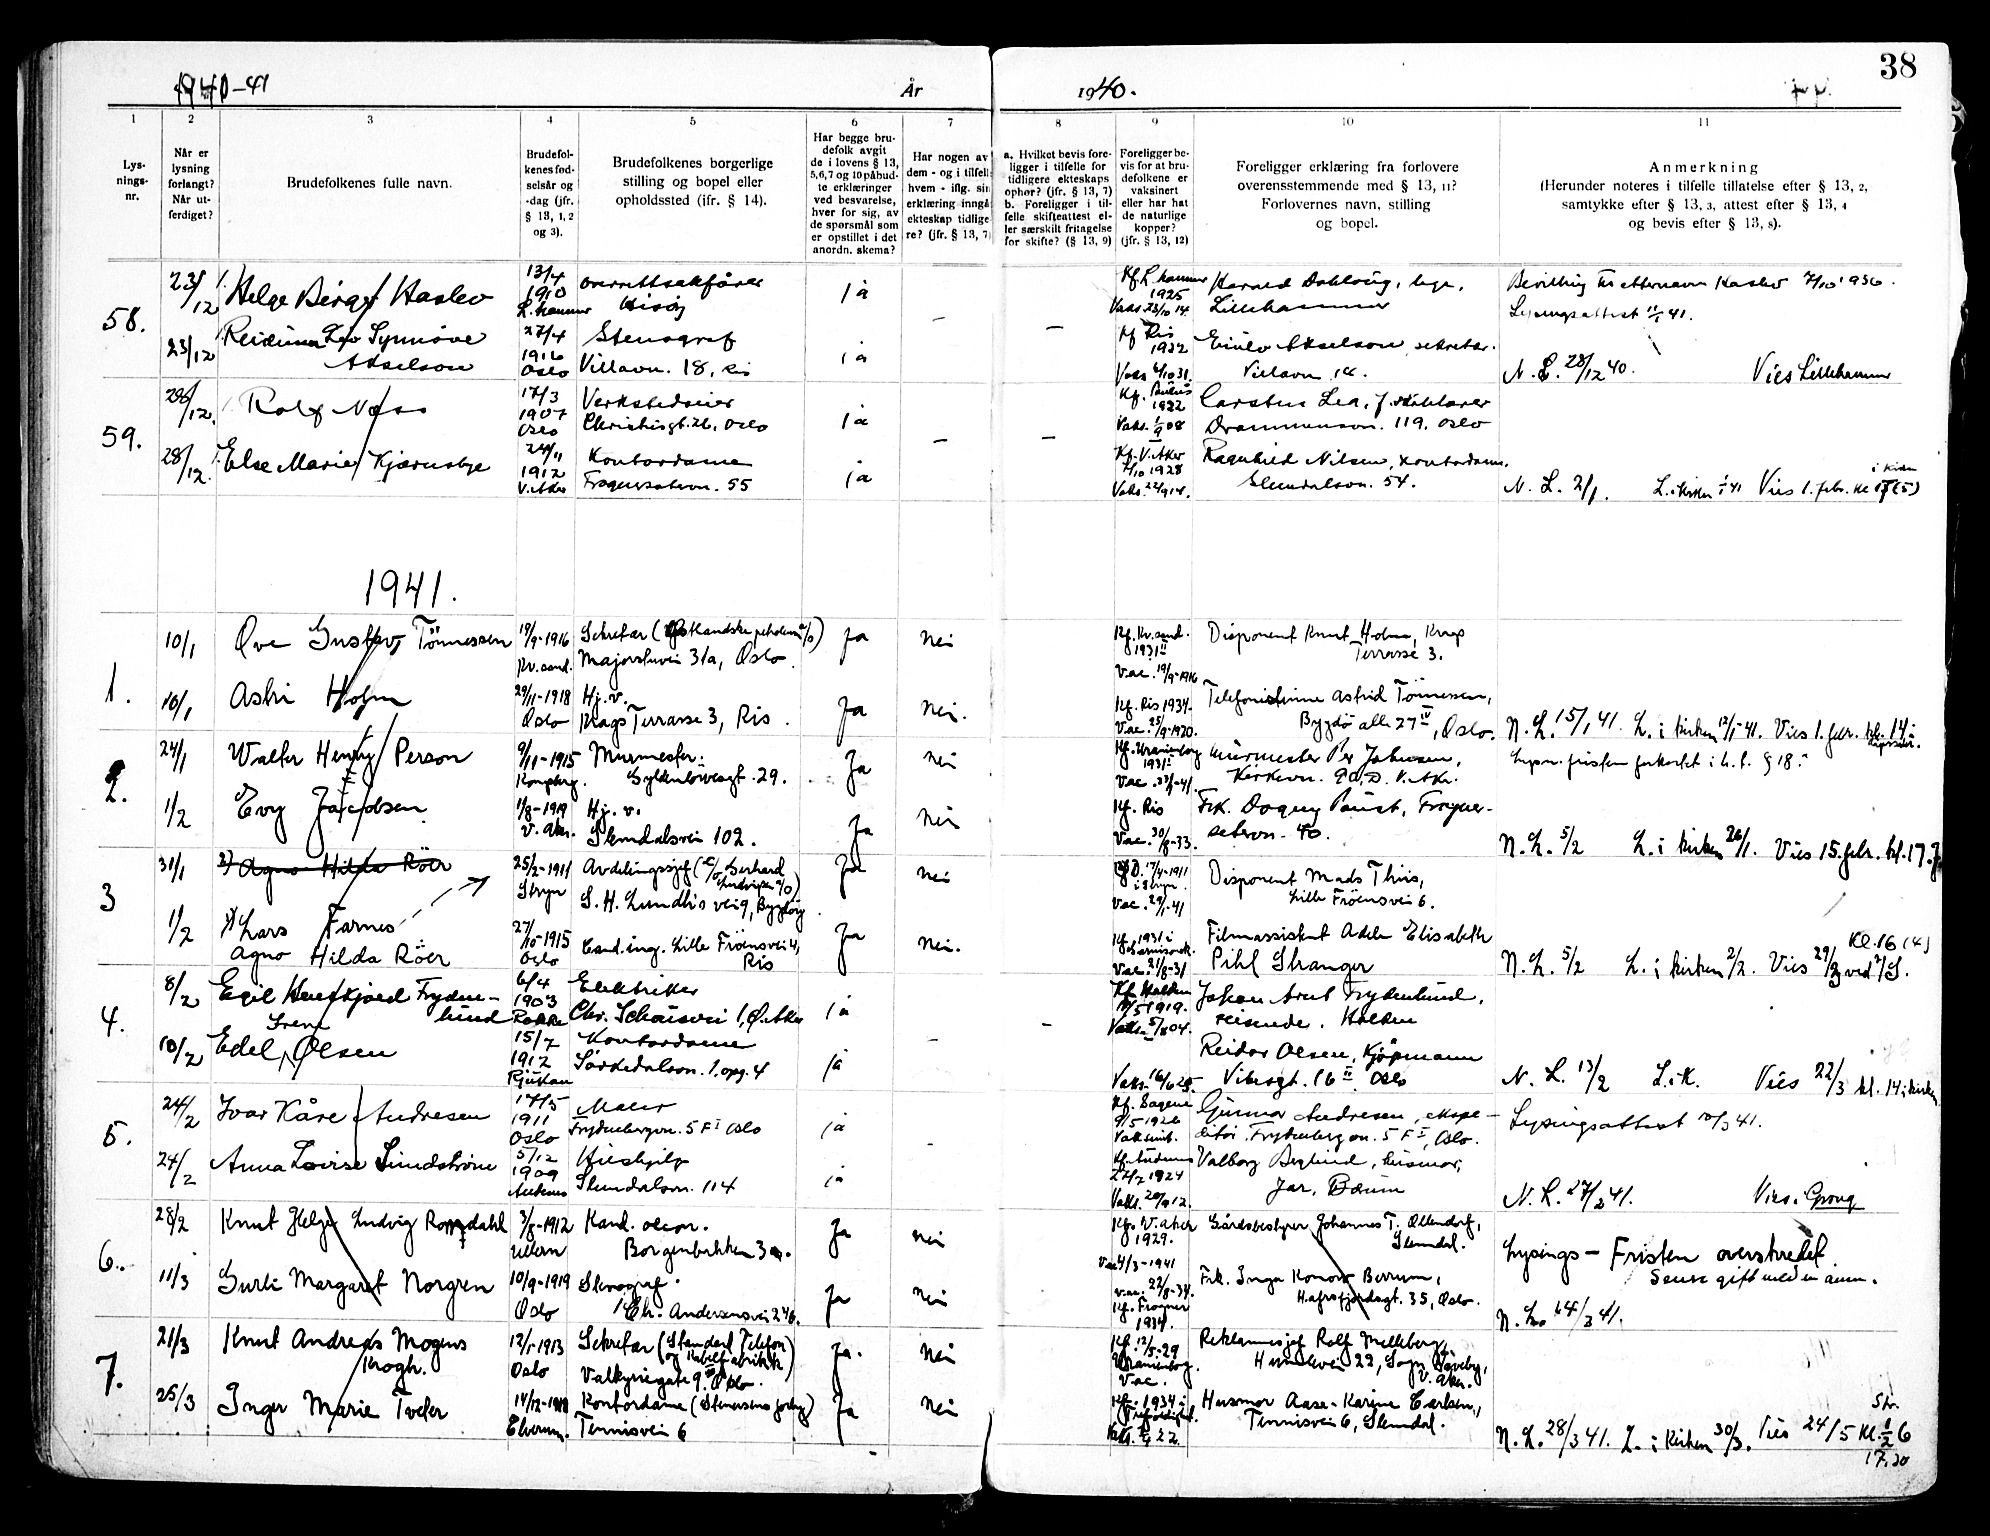 38
1940-41
År
1940.
1 2 3 4 5 6 7 8 9 10 11
Lys-
nings-
nr.
Når er
lysning
forlangt?
Når ut-
ferdiget?
Brudefolkenes fulle navn.
Brudefol-
kenes fød-
selsår og
-dag (jfr.
§ 13, 1, 2
og 3).
Brudefolkenes borgerlige
stilling og bopel eller
opholdssted (ifr. § 14).
Har begge bru-
defolk avgit
de i lovens § 13,
5,6,7 og 10 påbud-
te erklæringer
ved besvarelse,
hver for sig, av
de spørsmål som
er opstillet i det
anordn. skema?
Har nogen av
dem - og i tilfell
hvem - iflg. sin
erklæring inngå
ekteskap tidlige
re? (jfr. § 13, 7)
a. Hvilket bevis fore-
ligger i tilfelle for
tidligere ekteskaps
ophør? (jfr. § 13, 7)
b. Foreligger i til-
felle skifteattest el-
ler særskilt fritagelse
for skifte? (§ 13, 9)
Foreligger be-
vis for at bru-
defolkene er
vaksinert
eller har hat
de naturlige
kopper?
(jfr. § 13, 12)
Foreligger erklæring fra forlovere
overensstemmende med § 13, 11?
Forlovernes navn, stilling
og bopel.
Anmerkning
(Herunder noteres i tilfelle tillatelse efter § 13, 2,
samtykke efter § 13, 3, attest efter § 13, 4
og bevis efter § 13, 8).
58.
23/12 Helge Birger Haslev
13/4 1910 L.hammer
overrettssakfører
Hisøy
ja
Kf. L.hammer 1925
Vaks. 23/10 14.
Harald Dahl, lege,
Lillehammer
Bevilling til etternavn Haslev 7/10 1936.
Lysingsattest 11/1 41.
23/12 Reidunn Synnøve
Akselson
27/4 1916 Oslo
Stenograf
Villavn. 18, Ris
ja
Kf. Ris 1932
Akselson, sekretær.
Villavn. 18.
N. L. 28/12 40. Vies Lillehammer
59.
28/12. Rolf Næss
17/3 1907 Oslo
Verkstedeier
Christiesgt. 26, Oslo
ja
Kf. Paulus 1922
Vaks. 1/9 08
Carsten Lea,
Drammensvn. 119, Oslo
28/12. Else Marie Kjærnsbye
24/11 1912 V.Aker
Kontordame
Frognersetervn. 55
ja
Kf. V.Aker 1928
Vaks. 22/9 14.
Ragnhild Nilsen, kontordame.
Slemdalsvn. 54.
N. L. 2/1. L. i kirken 1/1 41 Vies 1. febr. kl 17 (5) i kirken
1941.
1.
10/1 Ove Gustav Tönnessen
19/9-1916 Kr.sand.
Sekretær (Østlandske petroleum A/S)
Majorstuvei 31a, Oslo.
Ja Nei
Kf. Kr.sand. 1931
Vac. 19/9-1916
Disponent Knut Holm, Krags
Terrasse 3.
10/1 Astri Holm
29/11-1918 Oslo
Hj. v.
Krags Terrasse 3, Ris.
Ja Nei.
Kf. Ris 1934.
Vac. 25/9-1920.
Telefonistinne Astrid Tönnessen,
Bygdö alle 27 IV, Oslo.
N. L. 15/1 41. L. i kirken 12/1-41. Vies 1. febr. kl. 14 i
2.
24/1 Walter Henry Person
9/11-1915 Kongsberg.
Murmester.
Gyldenlövesgt. 29.
Ja Nei
Kf. Uranienborg 1931
Murmester Per Johnsen,
Kirkevn. 90, D. V. Aker.
Lysn. fristen forkortet i h. t. § 18.
1/2 Evy Jacobsen
1/8-1919 V. Aker.
Hj. v.
Slemdalsvei 102.
Ja Nei
Kf. Ris
Vac. 30/8-33.
Frk. Dagny Paust, Frogner-
setervn. 40.
N. L. 5/2 L. i kirken 26/1. Vies 15. febr. kl. 17.
3
31/1 2) Agno Hilda Röer
25/2-1911 Stryn
Avdelingssjef (c/o Gerhard Ludvigsen A/S)
S. H. Lundhs vei 9, Bygdöy.
Ja Nei
Kf. D. 17/4-1911 i Stryn.
Vac. 29/1-41
Disponent Mads Thiis,
Lille Fröensvei 6.
1/2 1) Lars Farnes
Agno Hilda Röer
27/10-1915 Oslo
Cand. ing. Lille Fröensvei 4,
Ris
Ja Nei.
Kf. 1931 i
Vac. 21/8-31
Filmassistent Adele Elisabeth
Pihl Stranger
Kl. 16 (4)
N. L. 5/2 L. i kirken 2/2. Vies 29/3 ved
4.
8/2 Egil Herefkjoed Fryden-
lund
6/4 1903 Rakke
Elektriker
Chr. Schousvei 1, Ø. Aker
ja
Kf. Halden 1919.
Vaks. 5/8 04.
Johan Arnt Frydenlund,
reisende. Halden
10/2 Edel Irene Olsen
15/7 1912 Rjukan
Kontordame
Sørkedalsvn. 1, opg. 4
ja
Reidar Olsen, Kjøpmann
Vibesgt. 16 II Oslo
N. L. 13/2 L. i K. Vies 22/3 kl. 14 i kirken
5.
24/2 Ivar Kåre Andresen
17/5 1911 Oslo
Maler
Frydenbergvn. 5 F I Oslo
ja
Kf. Sagene 9/5 1926
Vaks. att.
Gunnar Andresen, ekspe-
ditør. Frydenbergvn. 5 F I, Oslo.
Lysingsattest 10/3 41.
24/2 Anna Lovise Sundström
5/12 1909 Andenes
Hushjelp
Slemdalsvn. 114
ja
Kf. Andenes 1924
Vaks. 20/9 12.
Valborg Berglund, husmor,
Jar, Bærum
N. L. 27/2 41. Vies i Grong
6.
28/2 Knut Helge Ludvig Romdahl
3/8-1912 Ullern
Kand. oecon.
Borgenbakken 3a.
Ja Nei
Kf. V. Aker 1929.
Vac 4/3-1941
Gårdsbestyrer Johannes T. Ollendorf,
Slemdal.
Lysings-Fristen overskredet.
Senere gift med en annen.
11/3 Gurli Margaret Norgren
10/9-1919 Oslo
Stenograf.
Chr. Andersensvei 24b.
Ja Nei
Vac. 22/8-34.
Kf. Frogner 1934.
Frk. Inga Konow Berrum,
Hafrsfjordsgt. 35, Oslo.
N. L. 14/3 41.
7.
21/3 Knut Andreas Mogens
Krogh.
12/1-1913 Oslo
Sekretær (Standard Telefon
og Kabelfabrikk)
Valkyriegate 9. Oslo.
Ja. Nei
Kf. 12/5-29 Uranienborg.
Vac.
Reklamesjef Rolf Melleberg,
Humlevei 22, Sogn Haveby,
V. Aker.
25/3 Inger Marie Tveter
14/12-1918 Elverum.
Kontordame (Stenersens forlag)
Tennisvei 6
Ja Nei
Kf. 1934 i
Vaks. 22.
Husmor Aase-Karine Carlsen,
Tennisvei 6, Slemdal.
N. L. 28/3 41. L. i kirken 30/3. Vies 24/5 kl. 1/2 6
17.30